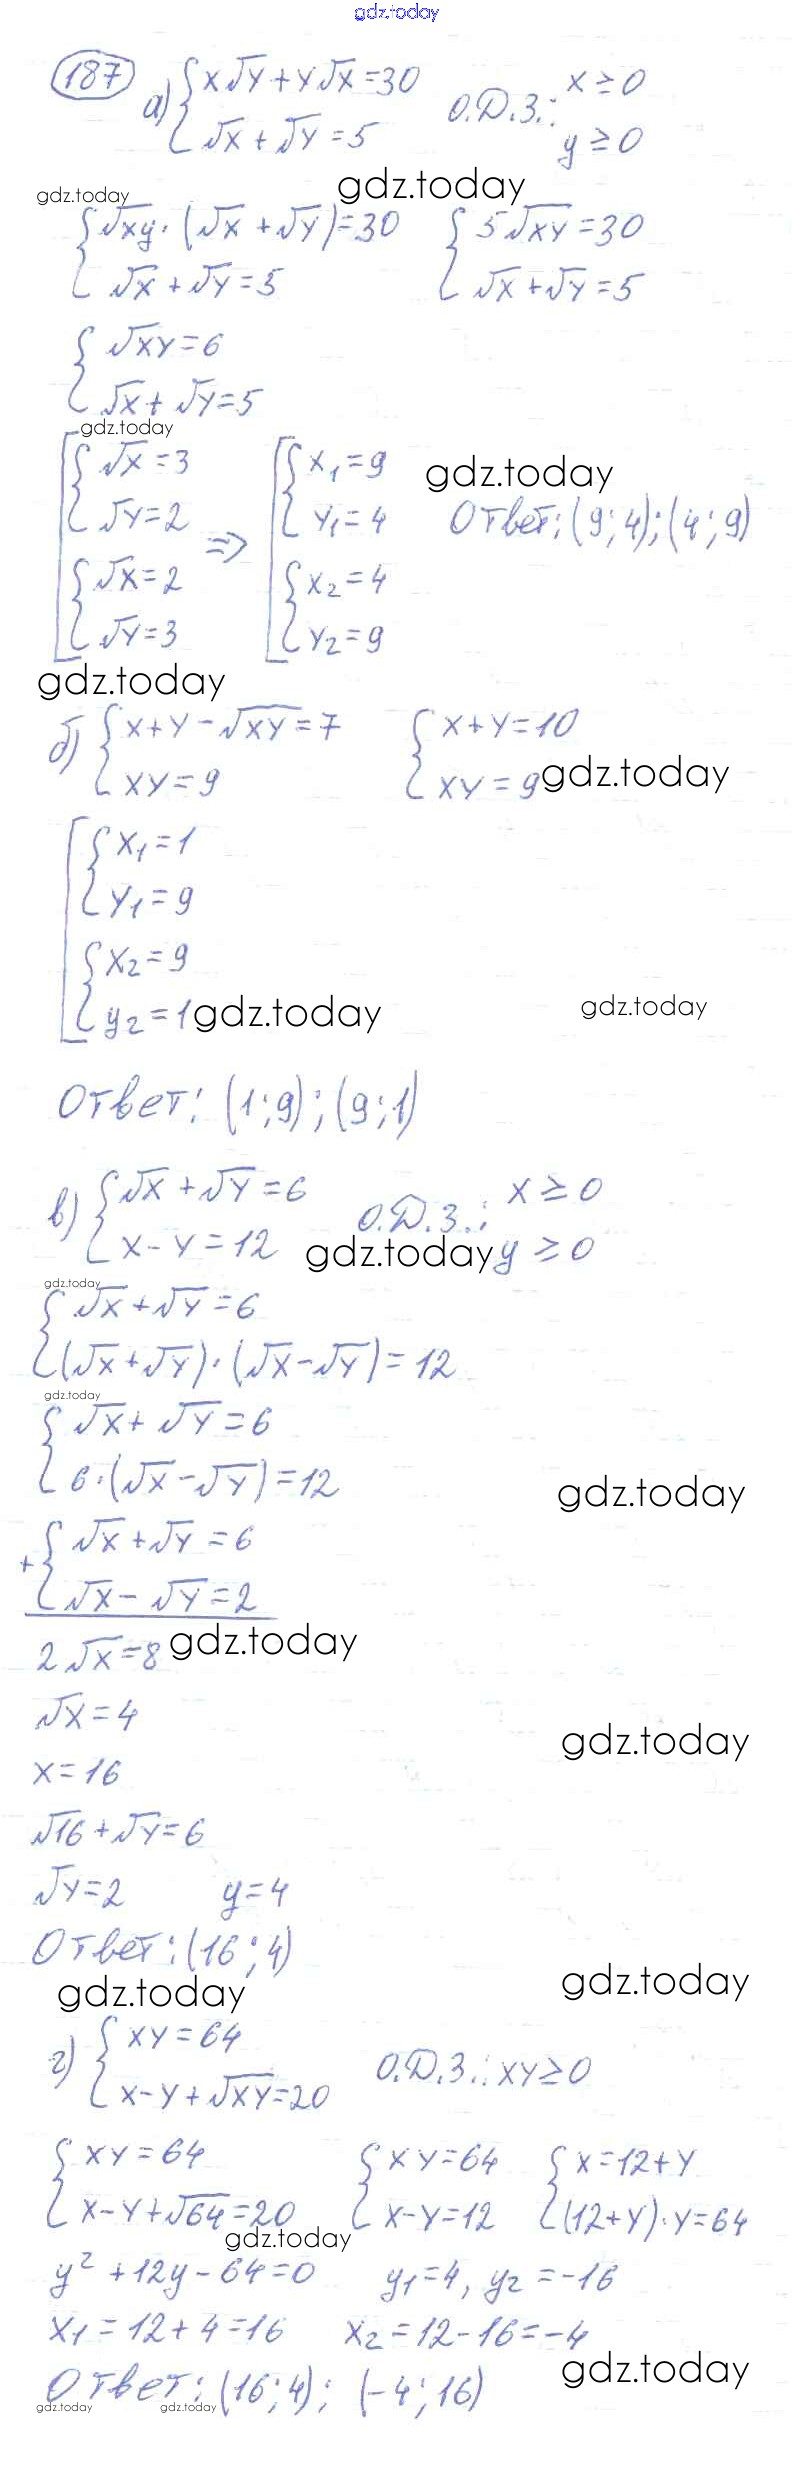 gdz.today
187 а) { x√y + y√x = 30
√x + √y = 5
О.Д.З.: x ≥ 0
y ≥ 0
gdz.today gdz.today
{ √xy · (√x + √y) = 30 { 5√xy = 30
√x + √y = 5 √x + √y = 5
{ √xy = 6
√x + √y = 5
gdz.today
[ { √x = 3
√y = 2
{ √x = 2
√y = 3
⇒ [ { x₁ = 9
y₁ = 4
{ x₂ = 4
y₂ = 9
gdz.today
Ответ: (9; 4); (4; 9)
gdz.today
б) { x + y - √xy = 7 { x + y = 10
xy = 9 xy = 9 gdz.today
[ { x₁ = 1
y₁ = 9
{ x₂ = 9
y₂ = 1 gdz.today gdz.today
Ответ: (1; 9); (9; 1)
в) { √x + √y = 6
x - y = 12
О.Д.З.: x ≥ 0
gdz.today y ≥ 0
gdz.today
{ √x + √y = 6
(√x + √y) · (√x - √y) = 12
gdz.today
{ √x + √y = 6
6 · (√x - √y) = 12
gdz.today
+ { √x + √y = 6
√x - √y = 2
2√x = 8 gdz.today
√x = 4
gdz.today
x = 16
√16 + √y = 6
√y = 2 y = 4
Ответ: (16; 4)
gdz.today gdz.today
г) { xy = 64
x - y + √xy = 20
О.Д.З.: xy ≥ 0
{ xy = 64 { xy = 64 { x = 12 + y
x - y + √64 = 20 x - y = 12 (12 + y) · y = 64
gdz.today
y² + 12y - 64 = 0 y₁ = 4, y₂ = -16
x₁ = 12 + 4 = 16 x₂ = 12 - 16 = -4
gdz.today
Ответ: (16; 4); (-4; 16)
gdz.today gdz.today